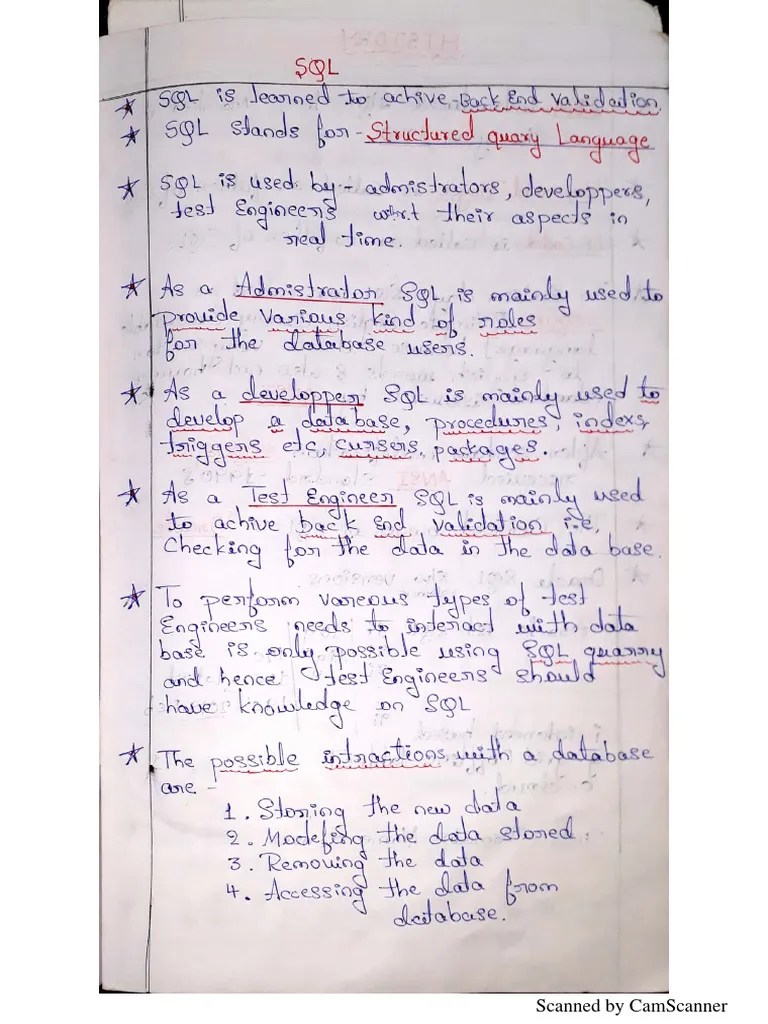 SQL
★ SQL is learned to achive Back End Validation
★ SQL stands for - Structured quary Language
★ SQL is used by - admistrators, developpers,
test Engineers w.r.t their aspects in
real time.
★ As a Admistrator SQL is mainly used to
provide various kind of roles
for the database users.
★ As a developper SQL is mainly used to
develop a database, procedures, indexs,
triggers etc, cursers, packages.
★ As a Test Engineer SQL is mainly used
to achive back End validation i.e,
Checking for the data in the data base.
★ To perform vareous types of test
Engineers needs to interact with data
base is only possible using SQL quarry
and hence test Engineers should
have knowledge on SQL
★ The possible intractions with a database
are -
1. Storing the new data
2. Modefing the data stored.
3. Removing the data
4. Accessing the data from
database.
Scanned by CamScanner